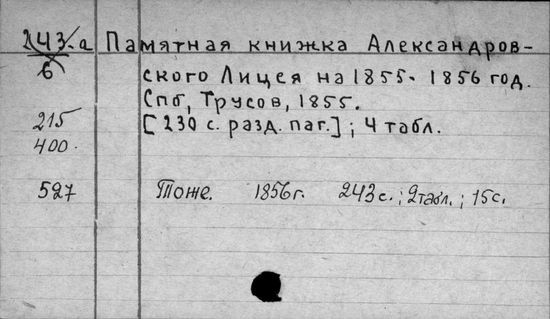 243.а Памятная книжка Александров-
6
ского Лицея на 1855-1856 год.
Спб, Трусов, 1855.
215 [230 с. разд. паг.]; 4 табл.
400.
527 Тоже. 1856г. 243с.; 2табл.; 15с.